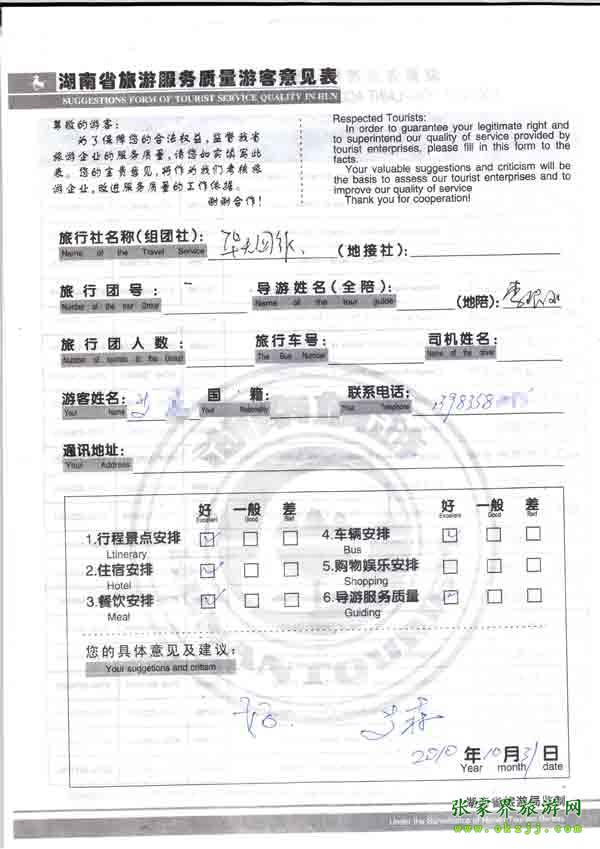 湖南省旅游服务质量游客意见表
SUGGESTIONS FORM OF TOURIST SERVICE QUALITY IN HUN
尊敬的游客：
为了保障您的合法权益，监督我省
旅游企业的服务质量，请您如实填写此
表。您的宝贵意见，将作为我们考核旅
游企业，改进服务质量的工作依据。
谢谢合作！
Respected Tourists:
In order to guarantee your legitimate right and
to superintend our quality of service provided by
tourist enterprises, please fill in this form to the
facts.
Your valuable suggestions and criticism will be
the basis to assess our tourist enterprises and to
improve our quality of service
Thank you for cooperation!
旅行社名称(组团社)： (地接社)：
Name of the Travel Service
旅行团号： 导游姓名(全陪)： (地陪)：
Number of the tour Group Name of the tour guide
旅行团人数： 旅行车号： 司机姓名：
The Bus Number Name of the driver
游客姓名： 国籍： 联系电话： 1398358
Your Name Your Nationality Your Telephone
通讯地址：
Your Address
好 一般 差 好 一般 差
Excellent Good Bad Excellent Good Bad
1.行程景点安排 4.车辆安排
Ltinerary Bus
2.住宿安排 5.购物娱乐安排
Hotel Shopping
3.餐饮安排 6.导游服务质量
Meal Guiding
您的具体意见及建议：
Your suggetions and critism
好
2010年10月31日
Year month date
湖南省旅游局监制
张家界旅游网
www.okzjj.com